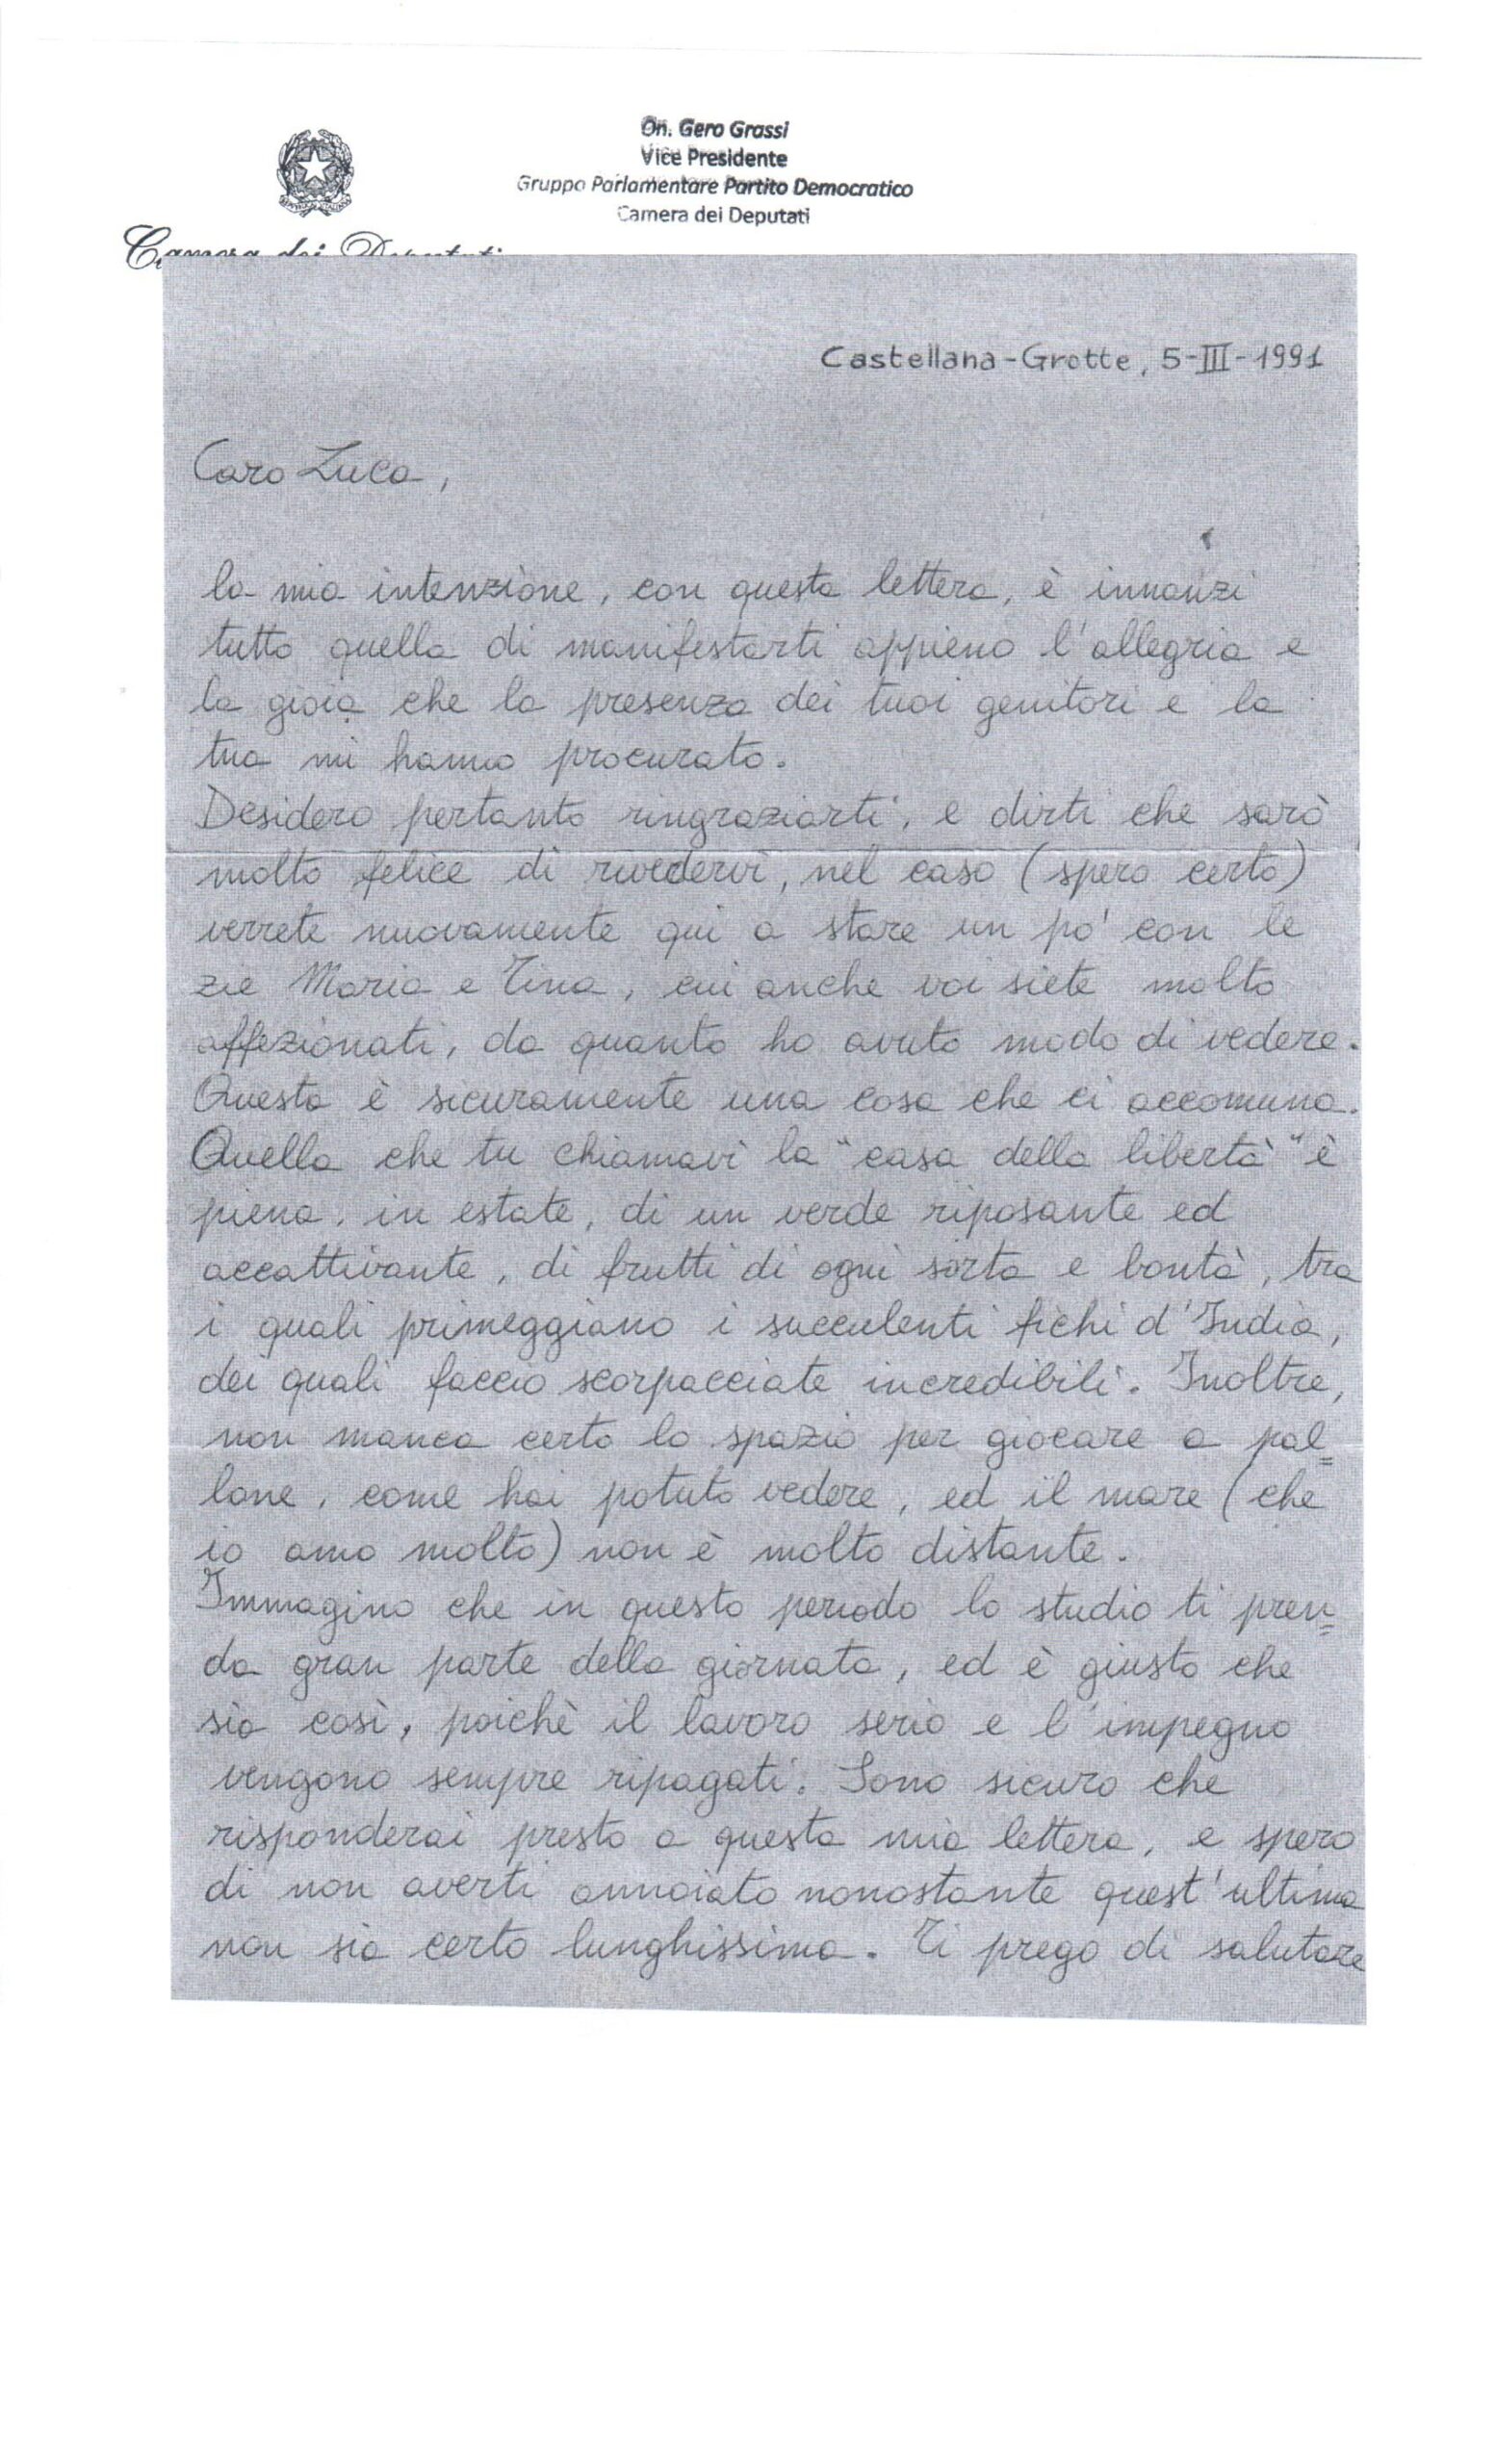 On. Gero Grassi
Vice Presidente
Gruppo Parlamentare Partito Democratico
Camera dei Deputati
Camera dei Deputati
Castellana-Grotte, 5-III-1991
Caro Luca,
la mia intenzione, con questa lettera, è innanzi
tutto quella di manifestarti appieno l'allegria e
la gioia che la presenza dei tuoi genitori e la
tua mi hanno procurato.
Desidero pertanto ringraziarti, e dirti che sarò
molto felice di rivedervi, nel caso (spero certo)
verrete nuovamente qui a stare un po' con le
zie Maria e Tina, cui anche voi siete molto
affezionati, da quanto ho avuto modo di vedere.
Questa è sicuramente una cosa che ci accomuna.
Quella che tu chiamavi la "casa della libertà" è
piena, in estate, di un verde riposante ed
accattivante, di frutti di ogni sorta e bontà, tra
i quali primeggiano i succulenti fichi d'India,
dei quali faccio scorpacciate incredibili. Inoltre,
non manca certo lo spazio per giocare a pal=
lone, come hai potuto vedere, ed il mare (che
io amo molto) non è molto distante.
Immagino che in questo periodo lo studio ti pren=
da gran parte della giornata, ed è giusto che
sia così, poichè il lavoro serio e l'impegno
vengono sempre ripagati. Sono sicuro che
risponderai presto a questa mia lettera, e spero
di non averti annoiato nonostante quest'ultima
non sia certo lunghissima. Ti prego di salutare